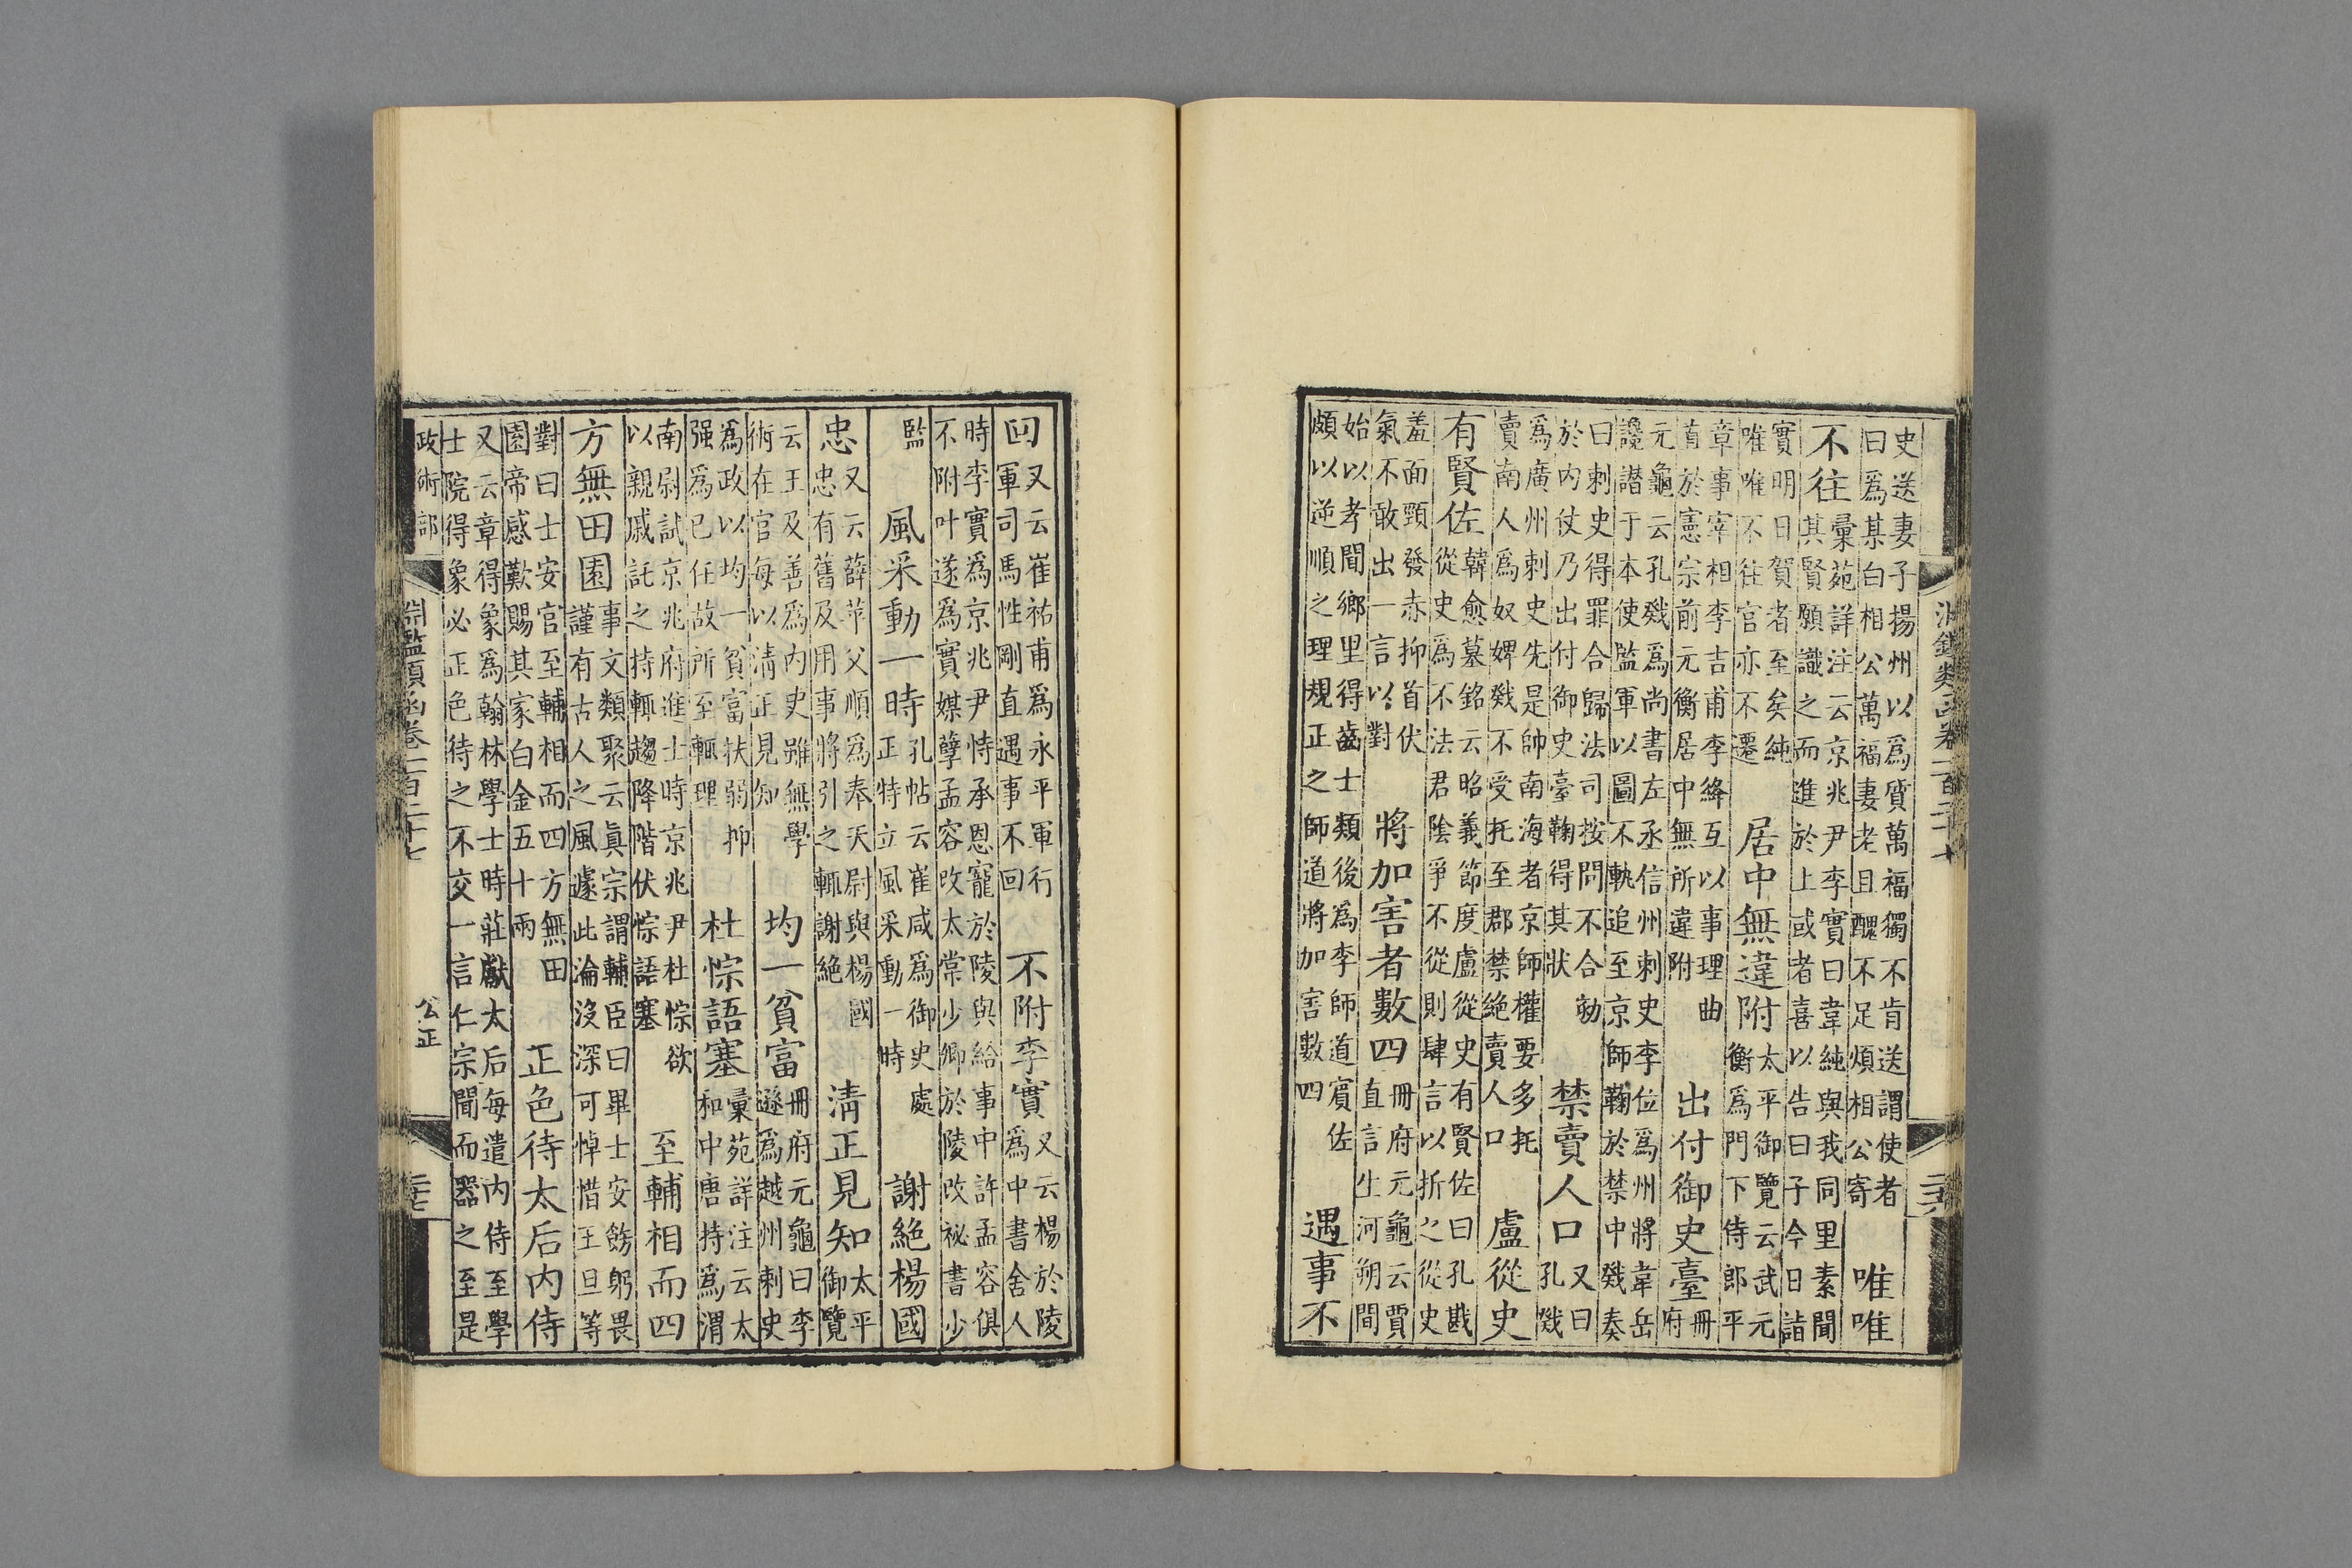 淵鑑類函卷二百二十七 二十六
史送妻子揚州以爲質萬福獨不肯送謂使者
曰爲某白相公萬福妻老且醜不足煩相公寄
唯唯
不往
彙苑詳注云京兆尹李實曰韋純與我同里素聞
其賢願識之而進於上或者喜以告曰子今日詣
實明日賀者至矣純
唯唯不往官亦不遷
居中無違附
太平御覽云武元
衡爲門下侍郎平
章事宰相李吉甫李絳互以事理曲
直於憲宗前元衡居中無所違附
出付御史臺
冊
府
元龜云孔戣爲尚書左丞信州刺史李位爲州將韋岳
讒譖于本使監軍以圖不軌追至京師鞫於禁中戣奏
曰刺史得罪合歸法司按問不合劾
於内仗乃出付御史臺鞫得其狀
禁賣人口
又曰
孔戣
爲廣州刺史先是帥南海者京師權要多托
賣南人爲奴婢戣不受托至郡禁絶賣人口
盧從史
有賢佐
韓愈墓銘云昭義節度盧從史有賢佐曰孔戡
從史爲不法君陰爭不從則肆言以折之從史
羞面頸發赤抑首伏
氣不敢出一言以對
將加害者數四
冊府元龜云賈
直言生河朔間
始以孝聞鄉里得齒士類後爲李師道賓佐
頗以逆順之理規正之師道將加害數四
遇事不
回
又云崔祐甫爲永平軍行
軍司馬性剛直遇事不回
不附李實
又云楊於陵
爲中書舍人
時李實爲京兆尹恃承恩寵於陵與給事中許孟容俱
不附叶遂爲實媒孽孟容改太常少卿於陵改祕書少
監
風采動一時
孔帖云崔咸爲御史處
正特立風采動一時
謝絶楊國
忠
又云薛苹父順爲奉天尉與楊國
忠有舊及用事將引之輒謝絶
清正見知
太平
御覽
云王及善爲内史雖無學
術在官每以清正見知
均一貧富
冊府元龜曰李
遜爲越州刺史
爲政以均一貧富扶弱抑
强爲已任故所至輒理
杜悰語塞
彙苑詳注云太
和中唐持爲渭
南尉試京兆府進士時京兆尹杜悰欲
以親戚託之持輒趨降階伏悰語塞
至輔相而四
方無田園
事文類聚云眞宗謂輔臣曰畢士安飭躬畏
謹有古人之風遽此淪沒深可悼惜王旦等
對曰士安官至輔相而四方無田
園帝感歎賜其家白金五十兩
正色待太后内侍
又云章得象爲翰林學士時莊獻太后每遣内侍至學
士院得象必正色待之不交一言仁宗聞而器之至是
政術部 淵鑑類函卷二百二十七 公正 二十七